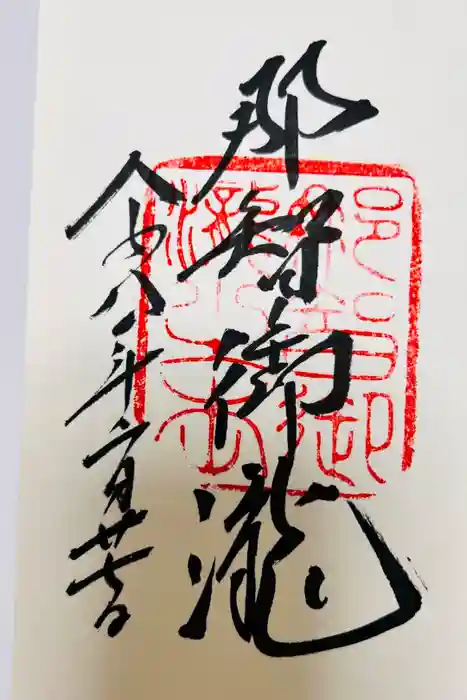 那智御瀧
令和八年二月廿七日